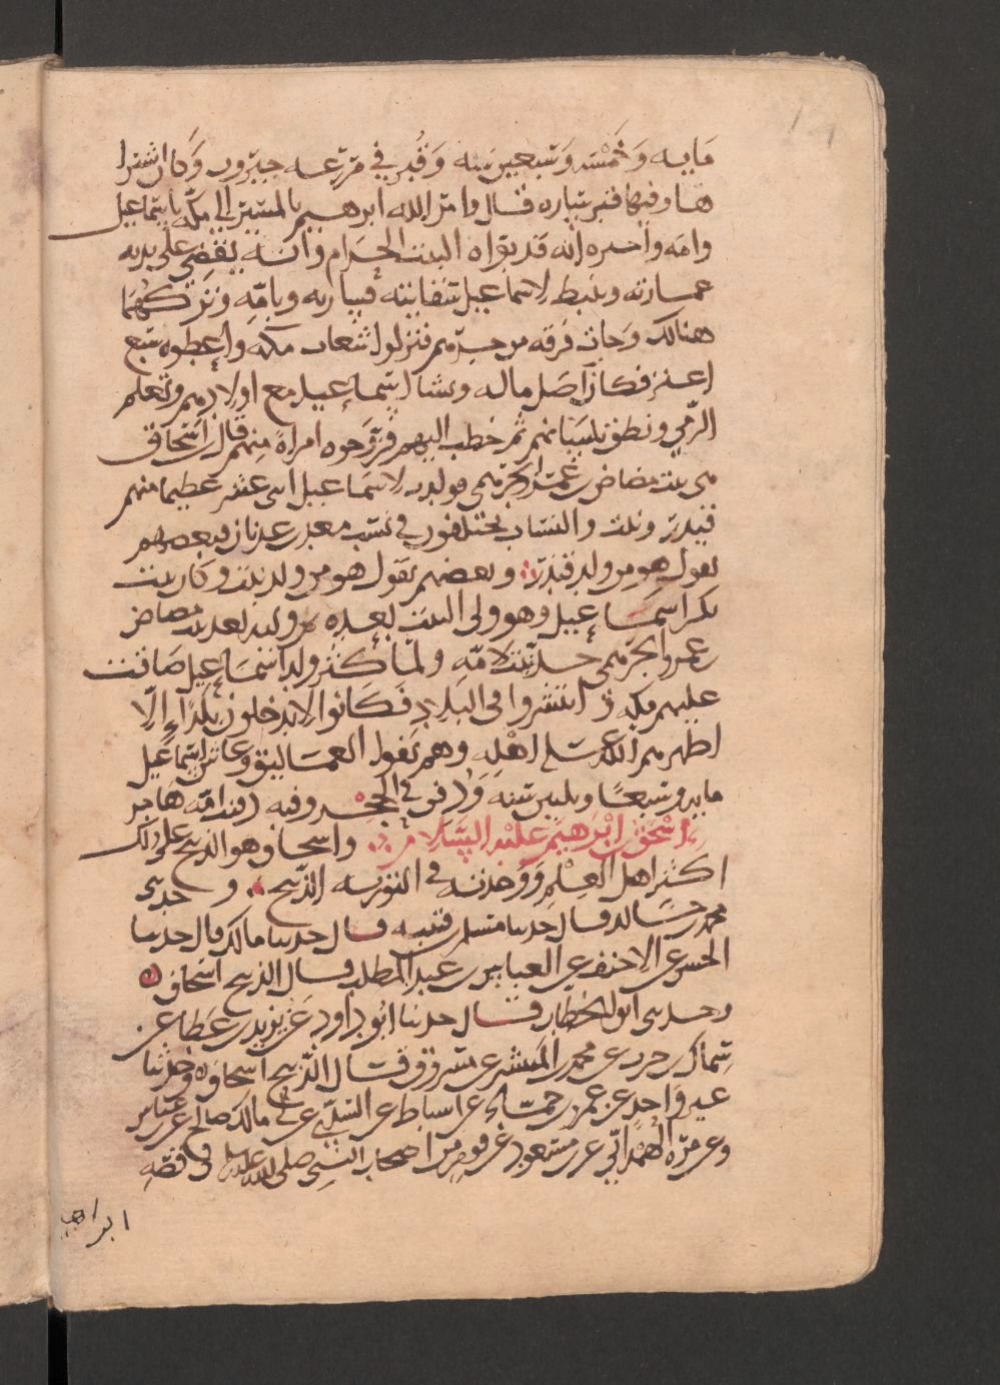 مايه وخمس وسبعين سنه وقبر في مزرعه حبرون وكان اشترا
ها وفيها قبر ساره قال وامر الله ابرهيم بالمسير الى مكه باسماعيل
وامه واخبره انه قد بواه البيت الحرام وانه يقضي على يديه
عمارته وينبط لاسماعيل سقايته فسار به وبامه وتركهما
هنالك وجات فرقه من جرهم فنزلوا شعاب مكه واعطوه سبع
اعنز فكان اصل ماله ونشا اسماعيل مع اولادهم وتعلم
الرمي ونطق بلسانهم ثم خطب اليهم فزوجوه امراة منهم قال اسحاق
هي بنت مضاض بن عمرو الجرهمي فولدت لاسماعيل اثني عشر عظيما منهم
قيدر ونبت والنساب يختلفون في نسب معد بن عدنان فبعضهم
يقول هو من ولد قيدر وبعضهم يقول هو من ولد نبت وكان نبت
بكر اسماعيل وهو ولي البيت بعده ثم وليه بعد نبت مضاض
عمرو الجرهمي جد نبت لامه ولما كثر ولد اسماعيل ضاقت
عليهم مكه انتشروا في البلاد فكانوا لا يدخلون بلدا الا
اظهرهم الله على اهله وهم نفوا العماليق وعاش اسماعيل
مايه وسبعا وثلثين سنه ودفن في الحجر وفيه دفنت امه هاجر
اسحق بن ابرهيم عليه السلام واسحاق هو الذبيح على ذلك
اكثر اهل العلم ووجدته في التوريه الذبيح وحدثني
محمد بن خالد قال حدثنا مسلم بن قتيبه قال حدثنا مالك قال حدثنا
الحسن عن الاحنف عن العباس بن عبد المطلب قال الذبيح اسحاق
وحدثني ابو الخطاب قال حدثنا ابو داود عن يزيد بن عطا عن
سماك بن حرب عن محمد بن المنتشر عن مسروق قال الذبيح اسحاق وحدثنا
غير واحد عن عمرو بن حماد عن اسباط عن السدي عن ابي مالك وابي صالح عن ابن عباس
وعن مره الهمداني عن ابن مسعود عن قوم من اصحاب النبي صلى الله عليه في قصه
ابراهيم